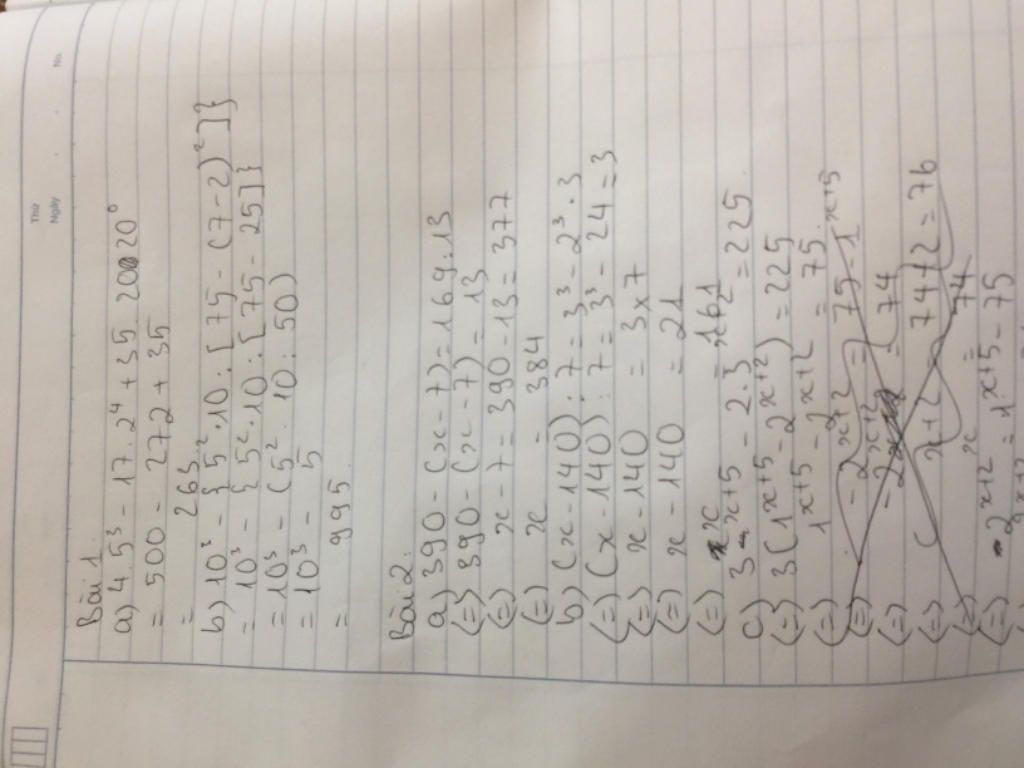 Thứ
Ngày No.
Bài 1.
a) 4.5³ - 17.2⁴ + 35 2020⁰
= 500 - 272 + 35
= 263
b) 10³ - { 5².10 : [ 75 - (7-2)² ] }
= 10³ - { 5².10 : [ 75 - 25 ] }
= 10³ - (5² . 10 : 50)
= 10³ - 5
= 995
Bài 2:
a) 390 - (x-7) = 169:13
(=) 390 - (x-7) = 13
(=) x - 7 = 390 - 13 = 377
(=) x = 384
b) (x-140) : 7 = 3³ - 2³ . 3
(=) (x-140) : 7 = 3³ - 24 = 3
(=) x - 140 = 3 x 7
(=) x - 140 = 21
(=) x = 161
c) 3 x+5 - 2.3 x+2 = 225
(=) 3(1 x+5 - 2 x+2) = 225
(=) 1 x+5 - 2 x+2 = 75
(=) - 2 x+2 = 75 - 1 x+5
(=) - 2 x+2 = 74
(=) x+2 74+2 = 76
(=) x = 74
(=) 2 x+2 = 1 x+5 - 75